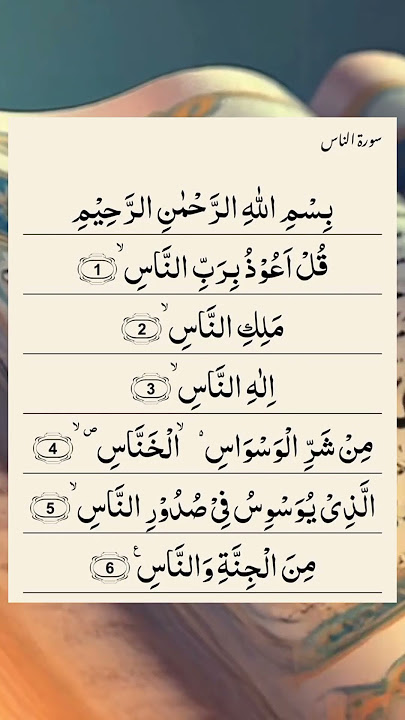 سورة الناس
بِسْمِ اللّٰهِ الرَّحْمٰنِ الرَّحِيْمِ
قُلْ اَعُوْذُ بِرَبِّ النَّاسِ ۙ 1
مَلِكِ النَّاسِ ۙ 2
اِلٰهِ النَّاسِ ۙ 3
مِنْ شَرِّ الْوَسْوَاسِ ۙ۬ الْخَنَّاسِ ۪ۙ 4
الَّذِىْ يُوَسْوِسُ فِىْ صُدُوْرِ النَّاسِ ۙ 5
مِنَ الْجِنَّةِ وَالنَّاسِ ع 6